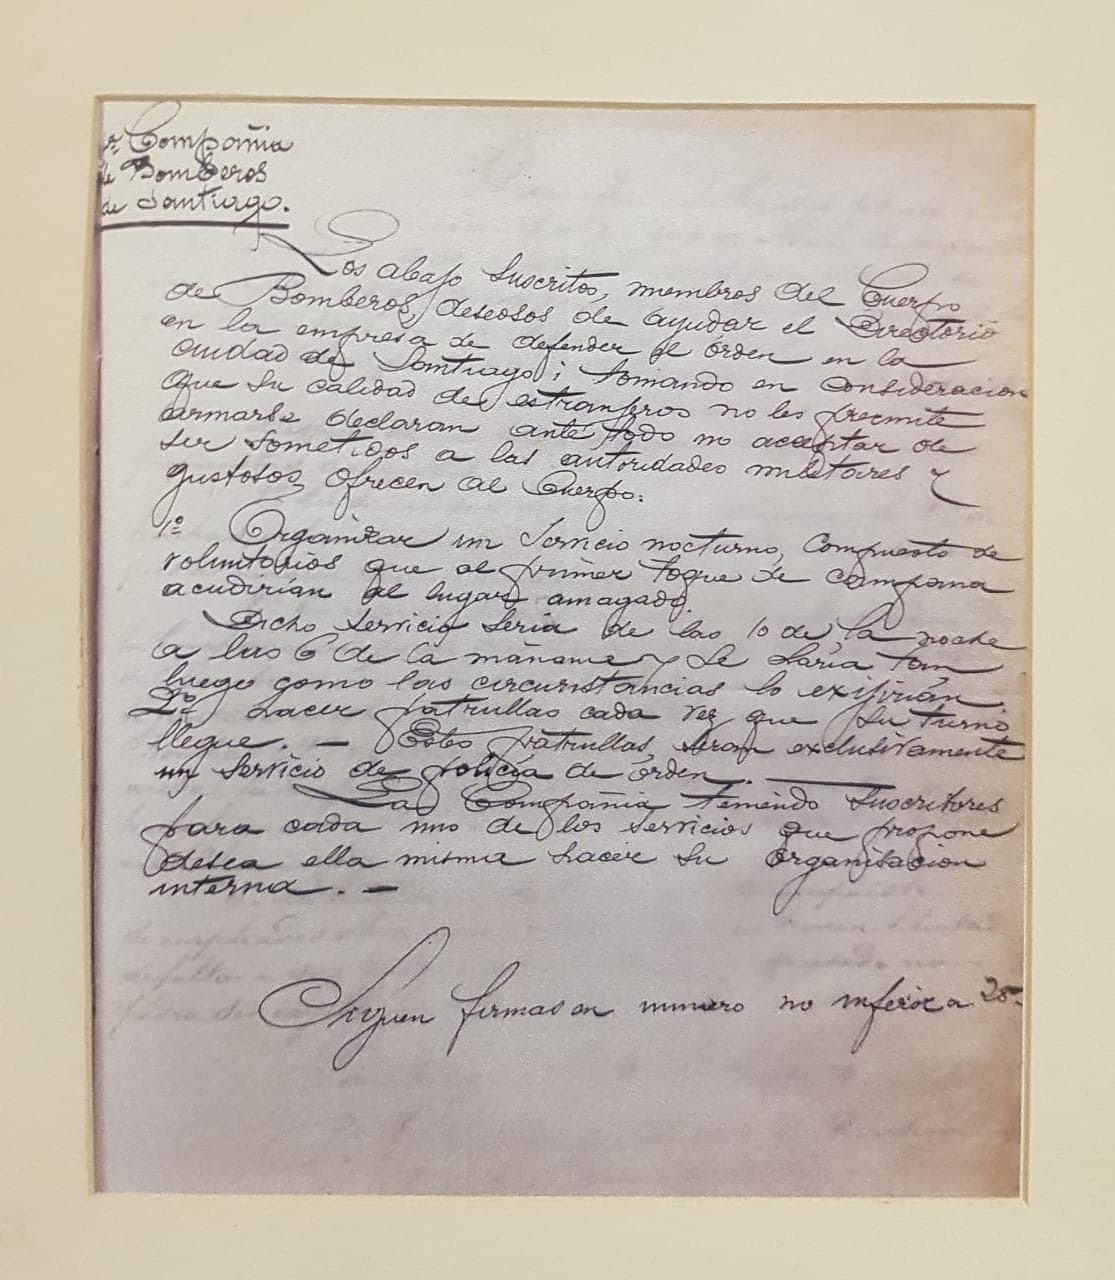 ª Compañia
de Bomberos
de Santiago.
Los abajo suscritos, miembros del Cuerpo
de Bomberos, deseosos de ayudar el Directorio
en la empresa de defender el órden en la
ciudad de Santiago i tomando en consideracion
que su calidad de estranjeros no les precmite
armarse declaran ante todo no aceptar de
ser sometidos a las autoridades militares y
gustosos ofrecen al Cuerpo:
1º Organizar un servicio nocturno, compuesto de
voluntarios que al primer toque de campana
acudirían al lugar amagado.
Dicho servicio seria de las 10 de la noche
a las 6 de la mañana y se haria tan
luego como las circunstancias lo exijirían.
2º Hacer patrullas cada vez que su turno
llegue. — Estas patrullas, seran exclusivamente
un servicio de policía de órden.
La Compañia teniendo suscritores
para cada uno de los servicios que propone
desea ella misma hacer su organisacion
interna. —
Siguen firmas en numero no inferior a 25.